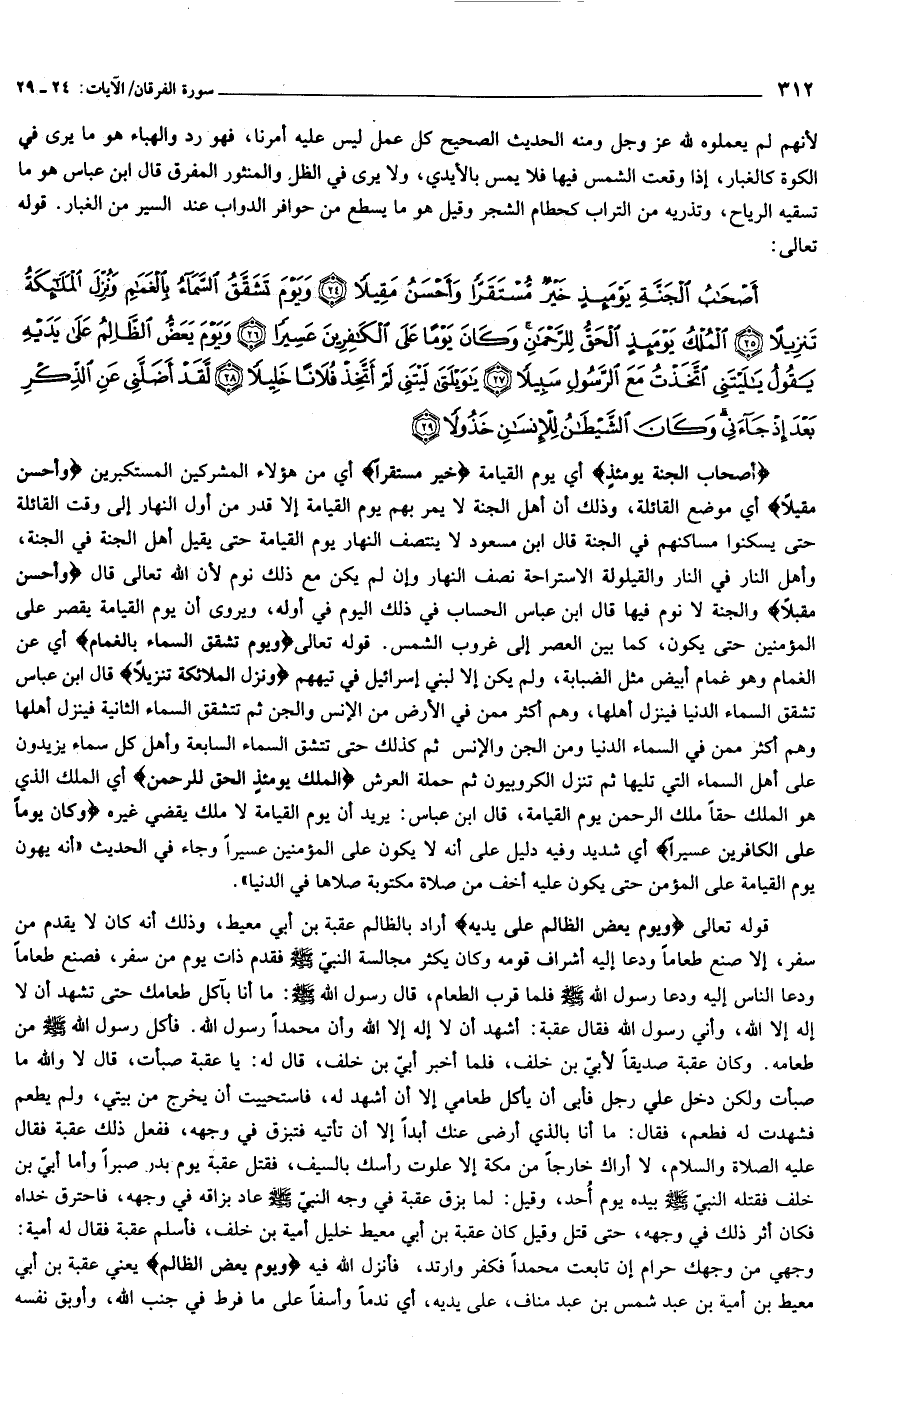 ٣١٢ سورة الفرقان/ الآيات: ٢٤ - ٢٩
لأنهم لم يعملوه لله عز وجل ومنه الحديث الصحيح كل عمل ليس عليه أمرنا، فهو رد والهباء هو ما يرى في
الكوة كالغبار، إذا وقعت الشمس فيها فلا يمس بالأيدي، ولا يرى في الظل والمنثور المفرق قال ابن عباس هو ما
تسقيه الرياح، وتذريه من التراب كحطام الشجر وقيل هو ما يسطع من حوافر الدواب عند السير من الغبار. قوله
تعالى:
أَصْحَابُ الْجَنَّةِ يَوْمَئِذٍ خَيْرٌ مُّسْتَقَرًّا وَأَحْسَنُ مَقِيلًا ﴿٢٤﴾ وَيَوْمَ تَشَقَّقُ السَّمَاءُ بِالْغَمَامِ وَنُزِّلَ الْمَلَائِكَةُ
تَنزِيلًا ﴿٢٥﴾ الْمُلْكُ يَوْمَئِذٍ الْحَقُّ لِلرَّحْمَٰنِ ۚ وَكَانَ يَوْمًا عَلَى الْكَافِرِينَ عَسِيرًا ﴿٢٦﴾ وَيَوْمَ يَعَضُّ الظَّالِمُ عَلَىٰ يَدَيْهِ
يَقُولُ يَا لَيْتَنِي اتَّخَذْتُ مَعَ الرَّسُولِ سَبِيلًا ﴿٢٧﴾ يَا وَيْلَتَىٰ لَيْتَنِي لَمْ أَتَّخِذْ فُلَانًا خَلِيلًا ﴿٢٨﴾ لَّقَدْ أَضَلَّنِي عَنِ الذِّكْرِ
بَعْدَ إِذْ جَاءَنِي ۗ وَكَانَ الشَّيْطَانُ لِلْإِنسَانِ خَذُولًا ﴿٢٩﴾
﴿أصحاب الجنة يومئذٍ﴾ أي يوم القيامة ﴿خير مستقراً﴾ أي من هؤلاء المشركين المستكبرين ﴿وأحسن
مقيلاً﴾ أي موضع القائلة، وذلك أن أهل الجنة لا يمر بهم يوم القيامة إلا قدر من أول النهار إلى وقت القائلة
حتى يسكنوا مساكنهم في الجنة قال ابن مسعود لا ينتصف النهار يوم القيامة حتى يقيل أهل الجنة في الجنة،
وأهل النار في النار والقيلولة الاستراحة نصف النهار وإن لم يكن مع ذلك نوم لأن الله تعالى قال ﴿وأحسن
مقيلاً﴾ والجنة لا نوم فيها قال ابن عباس الحساب في ذلك اليوم في أوله، ويروى أن يوم القيامة يقصر على
المؤمنين حتى يكون، كما بين العصر إلى غروب الشمس. قوله تعالى﴿ويوم تشقق السماء بالغمام﴾ أي عن
الغمام وهو غمام أبيض مثل الضبابة، ولم يكن إلا لبني إسرائيل في تيههم ﴿ونزل الملائكة تنزيلاً﴾ قال ابن عباس
تشقق السماء الدنيا فينزل أهلها، وهم أكثر ممن في الأرض من الإنس والجن ثم تتشقق السماء الثانية فينزل أهلها
وهم أكثر ممن في السماء الدنيا ومن الجن والإنس ثم كذلك حتى تتشق السماء السابعة وأهل كل سماء يزيدون
على أهل السماء التي تليها ثم تنزل الكروبيون ثم حملة العرش ﴿الملك يومئذٍ الحق للرحمن﴾ أي الملك الذي
هو الملك حقاً ملك الرحمن يوم القيامة، قال ابن عباس: يريد أن يوم القيامة لا ملك يقضي غيره ﴿وكان يوماً
على الكافرين عسيراً﴾ أي شديد وفيه دليل على أنه لا يكون على المؤمنين عسيراً وجاء في الحديث «أنه يهون
يوم القيامة على المؤمن حتى يكون عليه أخف من صلاة مكتوبة صلاها في الدنيا».
قوله تعالى ﴿ويوم يعض الظالم على يديه﴾ أراد بالظالم عقبة بن أبي معيط، وذلك أنه كان لا يقدم من
سفر، إلا صنع طعاماً ودعا إليه أشراف قومه وكان يكثر مجالسة النبيّ ﷺ فقدم ذات يوم من سفر، فصنع طعاماً
ودعا الناس إليه ودعا رسول الله ﷺ فلما قرب الطعام، قال رسول الله ﷺ: ما أنا بآكل طعامك حتى تشهد أن لا
إله إلا الله، وأني رسول الله فقال عقبة: أشهد أن لا إله إلا الله وأن محمداً رسول الله. فأكل رسول الله ﷺ من
طعامه. وكان عقبة صديقاً لأبيّ بن خلف، فلما أخبر أبيّ بن خلف، قال له: يا عقبة صبأت، قال لا والله ما
صبأت ولكن دخل علي رجل فأبى أن يأكل طعامي إلا أن أشهد له، فاستحييت أن يخرج من بيتي، ولم يطعم
فشهدت له فطعم، فقال: ما أنا بالذي أرضى عنك أبداً إلا أن تأتيه فتبزق في وجهه، ففعل ذلك عقبة فقال
عليه الصلاة والسلام، لا أراك خارجاً من مكة إلا علوت رأسك بالسيف، فقتل عقبة يوم بدر صبراً وأما أبيّ بن
خلف فقتله النبيّ ﷺ بيده يوم أُحد، وقيل: لما بزق عقبة في وجه النبيّ ﷺ عاد بزاقه في وجهه، فاحترق خداه
فكان أثر ذلك في وجهه، حتى قتل وقيل كان عقبة بن أبي معيط خليل أمية بن خلف، فأسلم عقبة فقال له أمية:
وجهي من وجهك حرام إن تابعت محمداً فكفر وارتد، فأنزل الله فيه ﴿ويوم يعض الظالم﴾ يعني عقبة بن أبي
معيط بن أمية بن عبد شمس بن عبد مناف، على يديه، أي ندماً وأسفاً على ما فرط في جنب الله، وأوبق نفسه